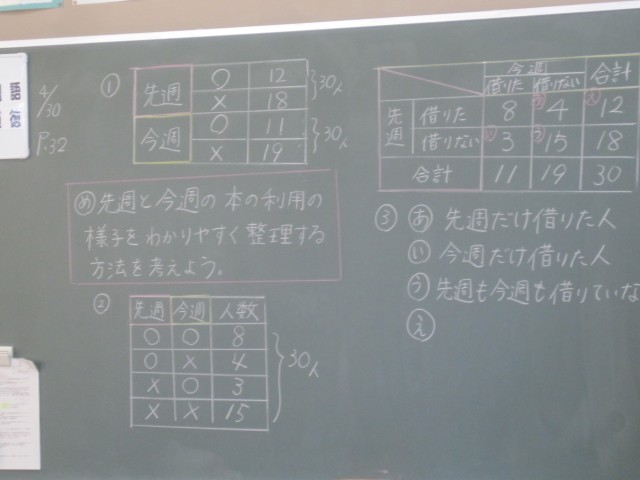 4/30
P.32
①
先週 ○ 12
× 18
}30人
今週 ○ 11
× 19
}30人
め 先週と今週の本の利用の
様子をわかりやすく整理する
方法を考えよう。
②
先週 今週 人数
○ ○ 8
○ × 4
× ○ 3
× × 15
}30人
今週 合計
借りた 借りない
先週 借りた 8 4 12
借りない 3 15 18
合計 11 19 30
③ あ 先週だけ借りた人
い 今週だけ借りた人
う 先週も今週も借りていな
え